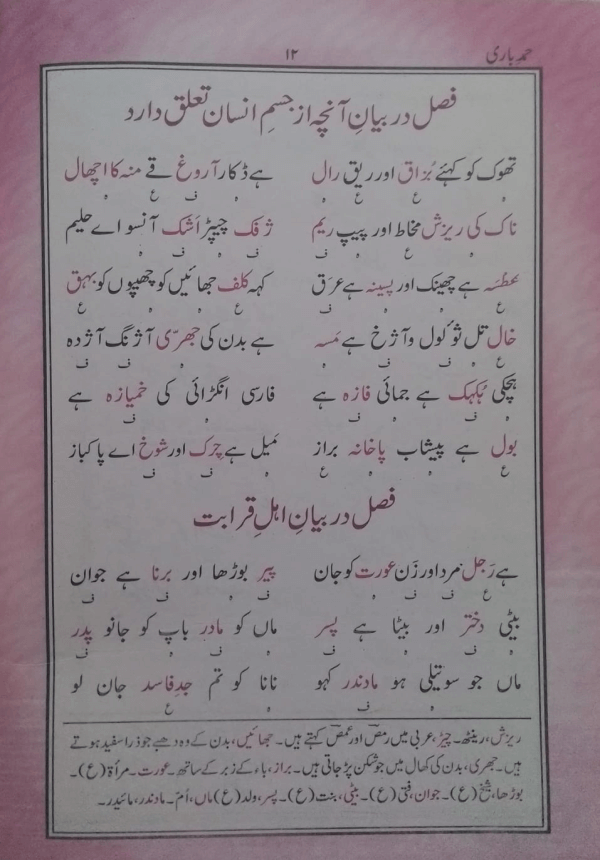 حمد باری
۱۲
فصل در بیانِ آنچہ از جسمِ انسان تعلق دارد
تھوک کو کہئے بُزاق اور ریق رال ہے ڈکار آروغ قے منہ کا اچھال
ہ ع ع ہ ہ ف ع ہ
ناک کی ریزش مخاط اور پیپ ریم ژفک چیپڑ اَشک آنسو اے حلیم
ہ ع ہ ف ف ہ ف ہ
عطسَہ ہے چھینک اور پسینہ ہے عرَق کہہ کلف جھائیں کو چھیپوں کو بہق
خال تل ثؤلول و آژخ ہے مَسہ ہے بدن کی جھرّی آژنگ آژدہ
ہچکی ہُکہک ہے جمائی فازہ ہے فارسی انگڑائی کی خمیازہ ہے
بول ہے پیشاب پاخانہ براز مَیل ہے چرک اور شوخ اے پاکباز
فصل در بیانِ اہلِ قرابت
ہے رَجل مَرد اور زَن عورت کو جان پیر بوڑھا اور برنا ہے جوان
بیٹی دختر اور بیٹا ہے پسر ماں کو مادر باپ کو جانو پدر
ماں جو سوتیلی ہو مادندر کہو نانا کو تم جدِ فاسد جان لو
ریزش، رینٹھ۔ چپڑ، عربی میں رمصؔ اور غمصؔ کہتے ہیں۔ جھائیں، بدن کے وہ دھبے جو ذرا سفید ہوتے
ہیں۔ جھری، بدن کی کھال میں جو شکن پڑ جاتی ہیں۔ براز، باء کے زبر کے ساتھ۔ عورت۔ مرأۃ (ع)۔
بوڑھا، شیخ (ع)۔ جوان، فتی (ع)۔ بیٹی، بنت (ع)۔ پسر، ولد (ع) ماں، اُمّ۔ مادندر، مائیدر۔